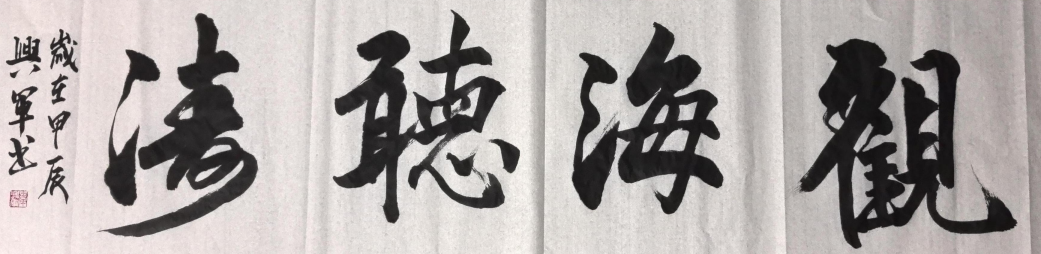 觀海聽濤
歲在甲辰
興軍書